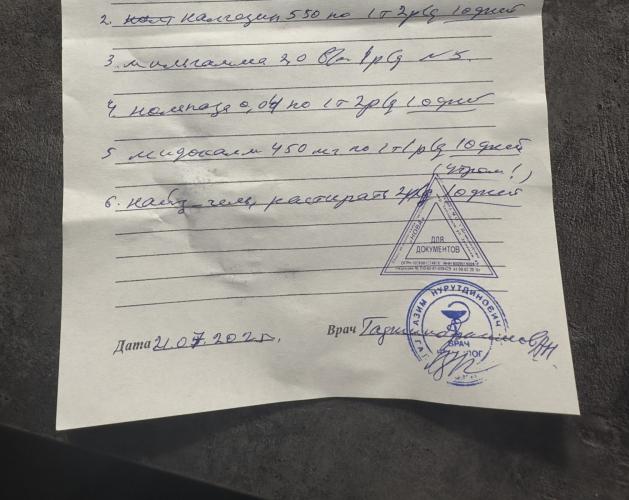 2. Налгезин 550 по 1т 2р/д 10 дней
3. Мильгамма 2,0 в/м 1р/д №5.
4. Нольпаза 0,04 по 1т 2р/д 10 дней
5 мидокалм 450 мг по 1т 1р/д 10 дней
(утром!)
6. Найз гель, растирать 2р/д 10 дней
ДЛЯ
ДОКУМЕНТОВ
АЗИМ НУРУТДИНОВИЧ
ВРАЧ
Дата 21.07.202 г. Врач